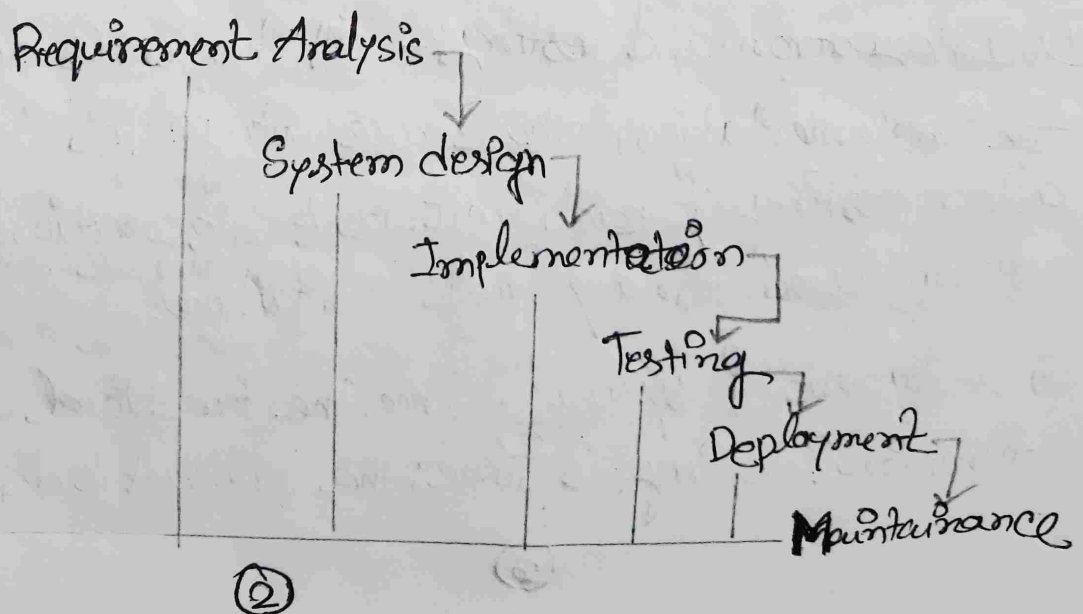 Requirement Analysis
System design
Implementation
Testing
Deployment
Maintainance
2